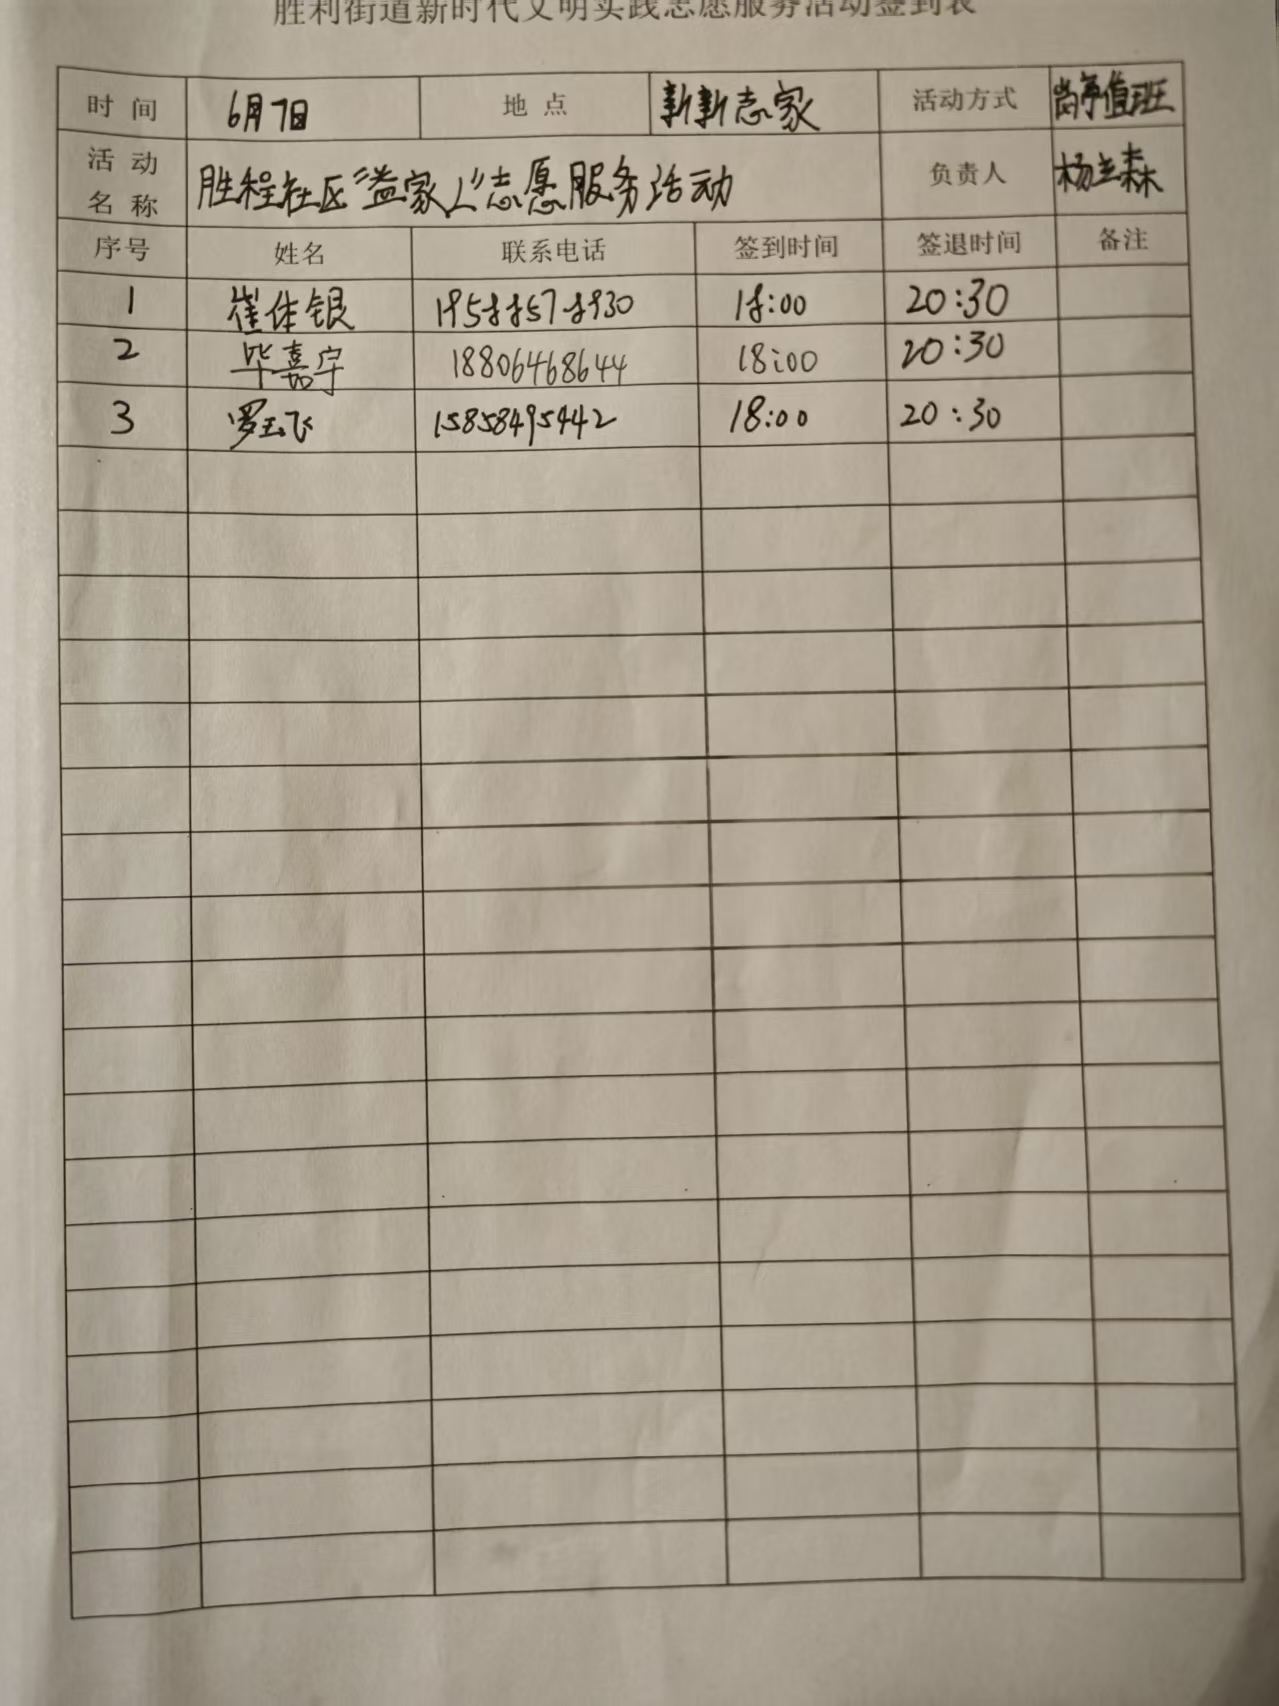 胜利街道新时代文明实践志愿服务活动签到表
时 间 6月7日 地 点 新新志家 活动方式 岗亭值班
活 动 名 称 胜程社区“益家人”志愿服务活动 负责人 杨兰森
序号 姓名 联系电话 签到时间 签退时间 备注
1 崔佳银 18:00 20:30
2 毕嘉宇 18806468644 18:00 20:30
3 罗玉飞 15858495442 18:00 20:30